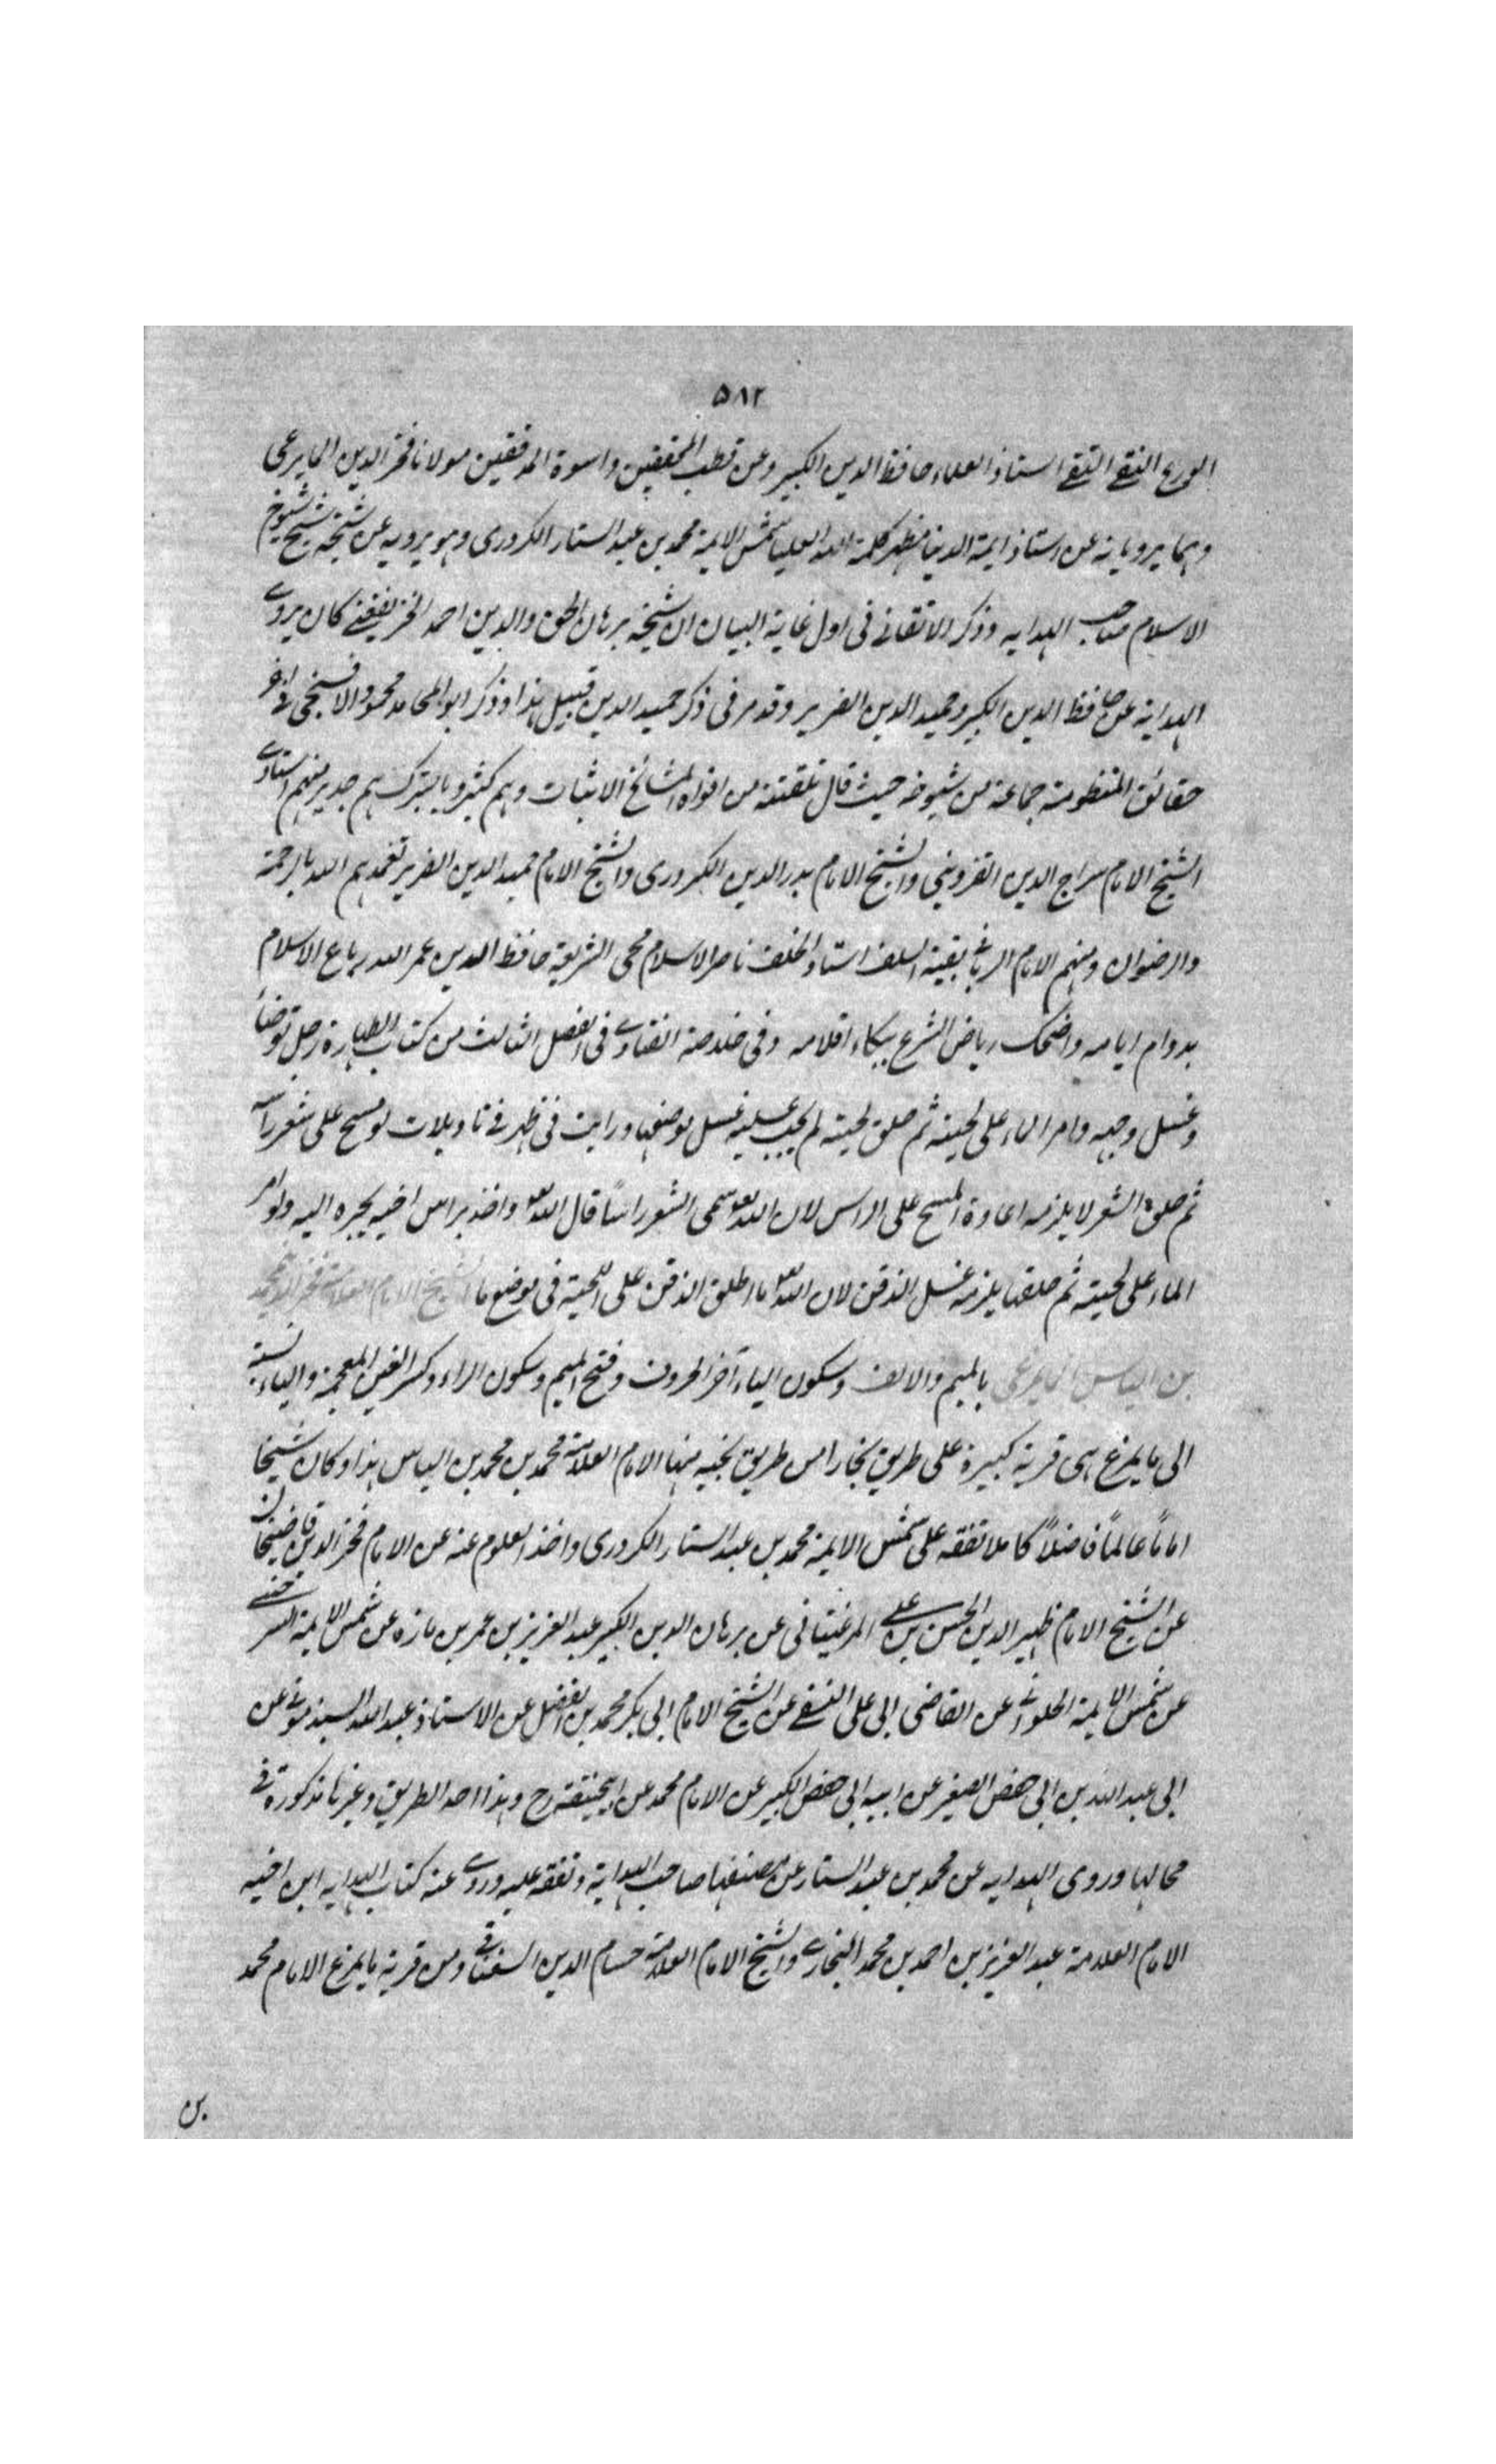 ٥٨٢
الورع النقي التقي استاذ العلماء حافظ الدين الكبير وعن قطب المحققين واسوة المدققين مولانا فخر الدين المايمرغى
وهما يرويانه عن استاذ ايمة الدنيا مظهر كلمة الله العليا شمس الايمة محمد بن عبد الستار الكردرى وهو يرويه عن شيخه شيخ شيوخ
الاسلام صاحب الهدايه وذكر الاتقانے فى اول غاية البيان ان شيخه برهان الحق والدين احمد الخريفغنے كان يروے
الهداية عن حافظ الدين الكبير وحميد الدين الضرير وقد مر فى ذكر حميد الدين قبيل هذا وذكر ابو المحامد محمود الافسنجى فے اخر
حقائق المنظومة جماعة من شيوخه حيث قال تلقنته من افواه المشائخ الاثبات وهم كثير وبالتبرك بهم جدير منهم استادے
الشيخ الامام سراج الدين القزوينى والشيخ الامام بدر الدين الكردرى والشيخ الامام حميد الدين الضرير تغمدهم الله بالرحمة
والرضوان ومنهم الامام الربانے بقية السلف استاد الخلف ناصر الاسلام محى الشريعة حافظ الدين عمر الله رباع الاسلام
بدوام ايامه واضحك رياض الشرع ببكاء اقلامه وفى خلاصة الفتاوے فى الفصل الثالث من كتاب الطهارة رجل توضأ
وغسل وجهه وامر الماء على لحيته ثم حلق لحيته لم يجب عليه غسل موضعها ورايت فى فے تاويلات لو مسح على شعر راسه
ثم حلق الشعر لا يلزمه اعادة المسح على الراس لان الله تعالى سمى الشعر راسًا قال الله تعالى واخذ براس اخيه يجره اليه ولو امر
الماء على لحيته ثم حلقها يلزمه غسل الذقن لان الله تعالى ما اطلق الذقن على اللحية فى موضع ما الشيخ الامام العلامة فخر الدين محمد
بن الياس المايمرغى بالميم والالف وسكون الياء آخر الحروف وفتح الميم وسكون الراء وكسر الغين المعجمة والياء نسبة
الى مايمرغ هى قرية كبيرة على طريق بخارا من طريق نخشب منها الامام العلامة محمد بن محمد بن الياس هذا وكان شيخا
اماماً عالماً فاضلاً كاملا تفقه على شمس الايمة محمد بن عبد الستار الكردرى واخذ العلوم عنه عن الامام فخر الدين قاضيخان
عن الشيخ الامام ظهير الدين الحسن بن على المرغينانى عن برهان الدين الكبير عبد العزيز بن عمر بن مازه عن شمس الايمة السرخسے
عن شمس الايمة الحلوانے عن القاضى ابى على النسفے عن الشيخ الامام ابى بكر محمد بن الفضل عن الاستاذ عبد الله السبذمونے عن
ابى عبد الله بن ابى حفص الصغير عن ابيه ابى حفص الكبير عن الامام محمد عن ابيحنيفة رح وهذا احد الطريق وغيرها مذكورة فے
محالها وروى الهدايه عن محمد بن عبد الستار عن مصنفها صاحب الهداية وتفقه عليه وروے عنه كتاب الهدايه ابن اخيه
الامام العلامة عبد العزيز بن احمد بن محمد البخارے والشيخ الامام العلامة حسام الدين السغناقے ومن قرية مايمرغ الامام محمد
بن